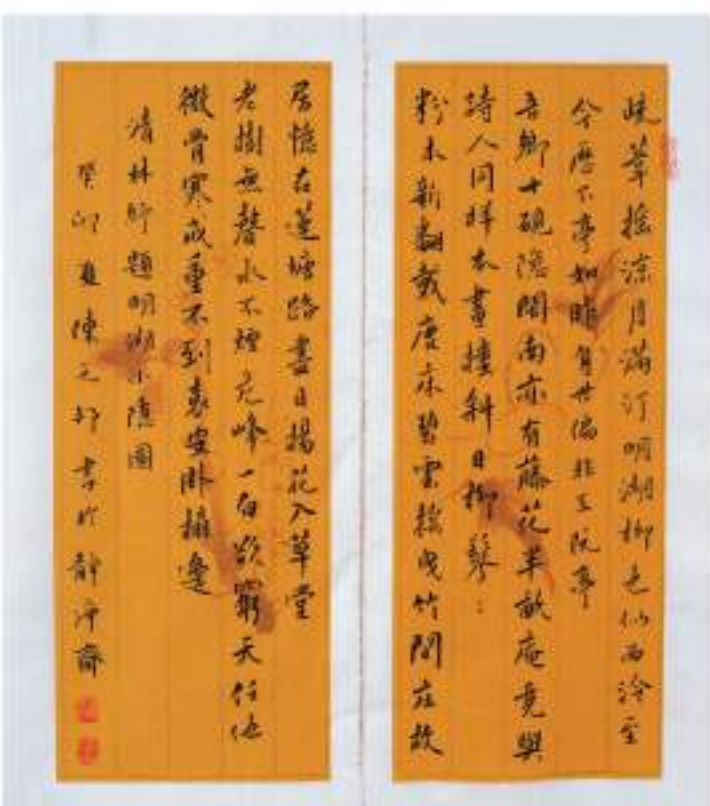 疏葦搖涼月滿汀明湖柳色似西泠至
今歷下亭如昨身世偏非王阮亭
吾鄉十硯隱閩南亦有藤花半畝庵竟與
詩人同樣本畫樓斜日柳鬖ː
粉本新翻載唐床碧雲搖曳竹間莊故
居憶在蓮塘路盡日楊花入草堂
老樹無聲水不煙危峰一白欲窮天任他
徹骨寒成重不到袁安臥榻邊
清林昉題明湖小隱圖
癸卯夏陳元邦書於靜淨齋